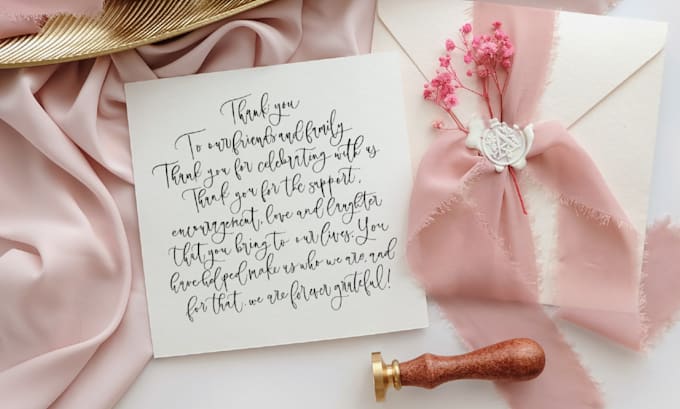 Thank you
To our friends and family
Thank you for celebrating with us
Thank you for the support,
encouragement, love and laughter
that you bring to our lives. You
have helped make us who we are, and
for that we are forever grateful!